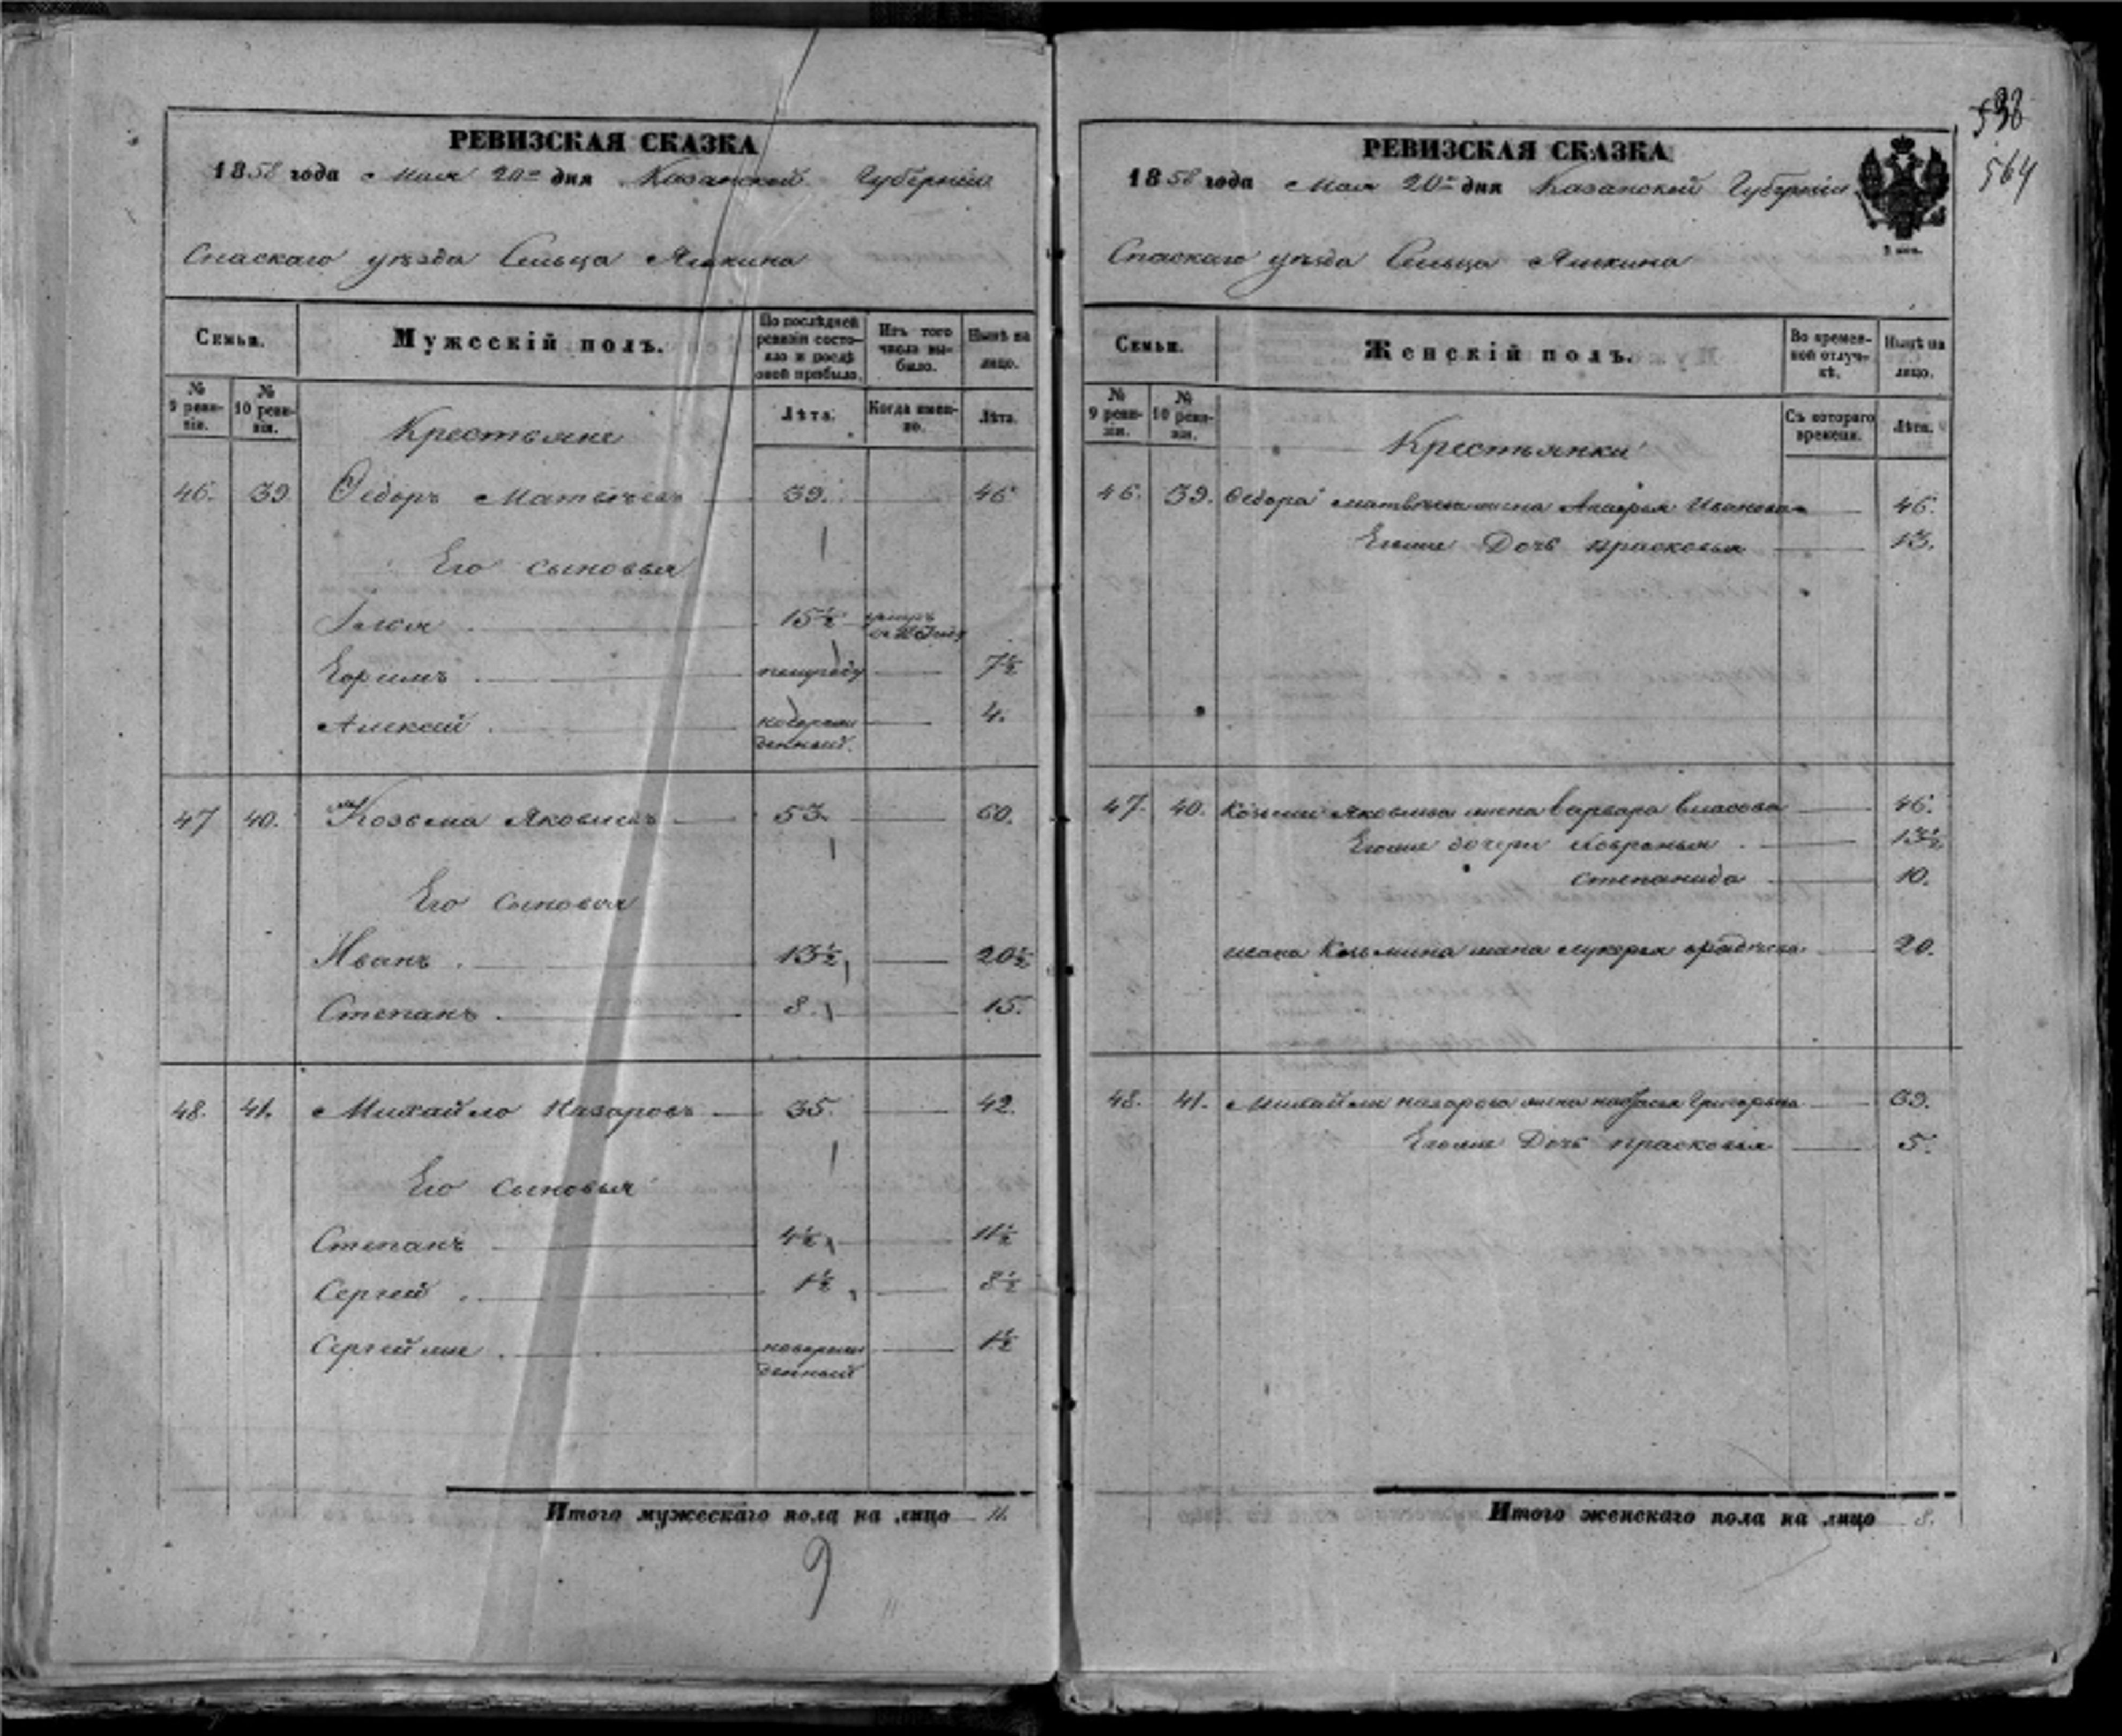 РЕВИЗСКАЯ СКАЗКА
1858 года Мая 20го дня Казанской Губернiи
Спаскаго уѣзда Сельца Ямкина
Семьи.
Мужескiй полъ.
По послѣдней ревизiи состояло и послѣ оной прибыло.
Изъ того числа выбыло.
Нынѣ на лицо.
№ 9 ревизiи.
№ 10 ревизiи.
Лѣта.
Когда именно.
Лѣта.
Крестьяне
46. 39. Ѳедоръ Матвѣевъ 39. 46
Его сыновья
Илья 15½ умеръ
Ефимъ 7½
Алексѣй новорожденный. 4.
47 40. Козьма Яковлевъ 53. 60.
Его сыновья
Иванъ 13½ 20½
Степанъ 8. 15.
48. 41. Михайло Назаровъ 35. 42.
Его сыновья
Степанъ 4½ 11½
Сергей 1½ 8½
Сергей же новорожденный 1½
Итого мужескаго пола на лицо 11.
9
РЕВИЗСКАЯ СКАЗКА
1858 года Мая 20го дня Казанской Губернiи
2 коп.
538
564
Спаскаго уѣзда Сельца Ямкина
Семьи.
Женскiй полъ.
Во временной отлучкѣ.
Нынѣ на лицо.
№ 9 ревизiи.
№ 10 ревизiи.
Съ котораго времени.
Лѣта.
Крестьянки
46. 39. Ѳедора Матвѣева жена Иванова 46.
Егоже Дочь Прасковья 13.
47. 40. Козьмы Яковлева жена Варвара Власова 46.
Егоже дочери 13½
Степанида 10.
Ивана Козьмина жена Лукерья 20.
48. 41. Михайлы Назарова жена Настасья Григорьева 39.
Егоже Дочь Прасковья 5.
Итого женскаго пола на лицо 8.